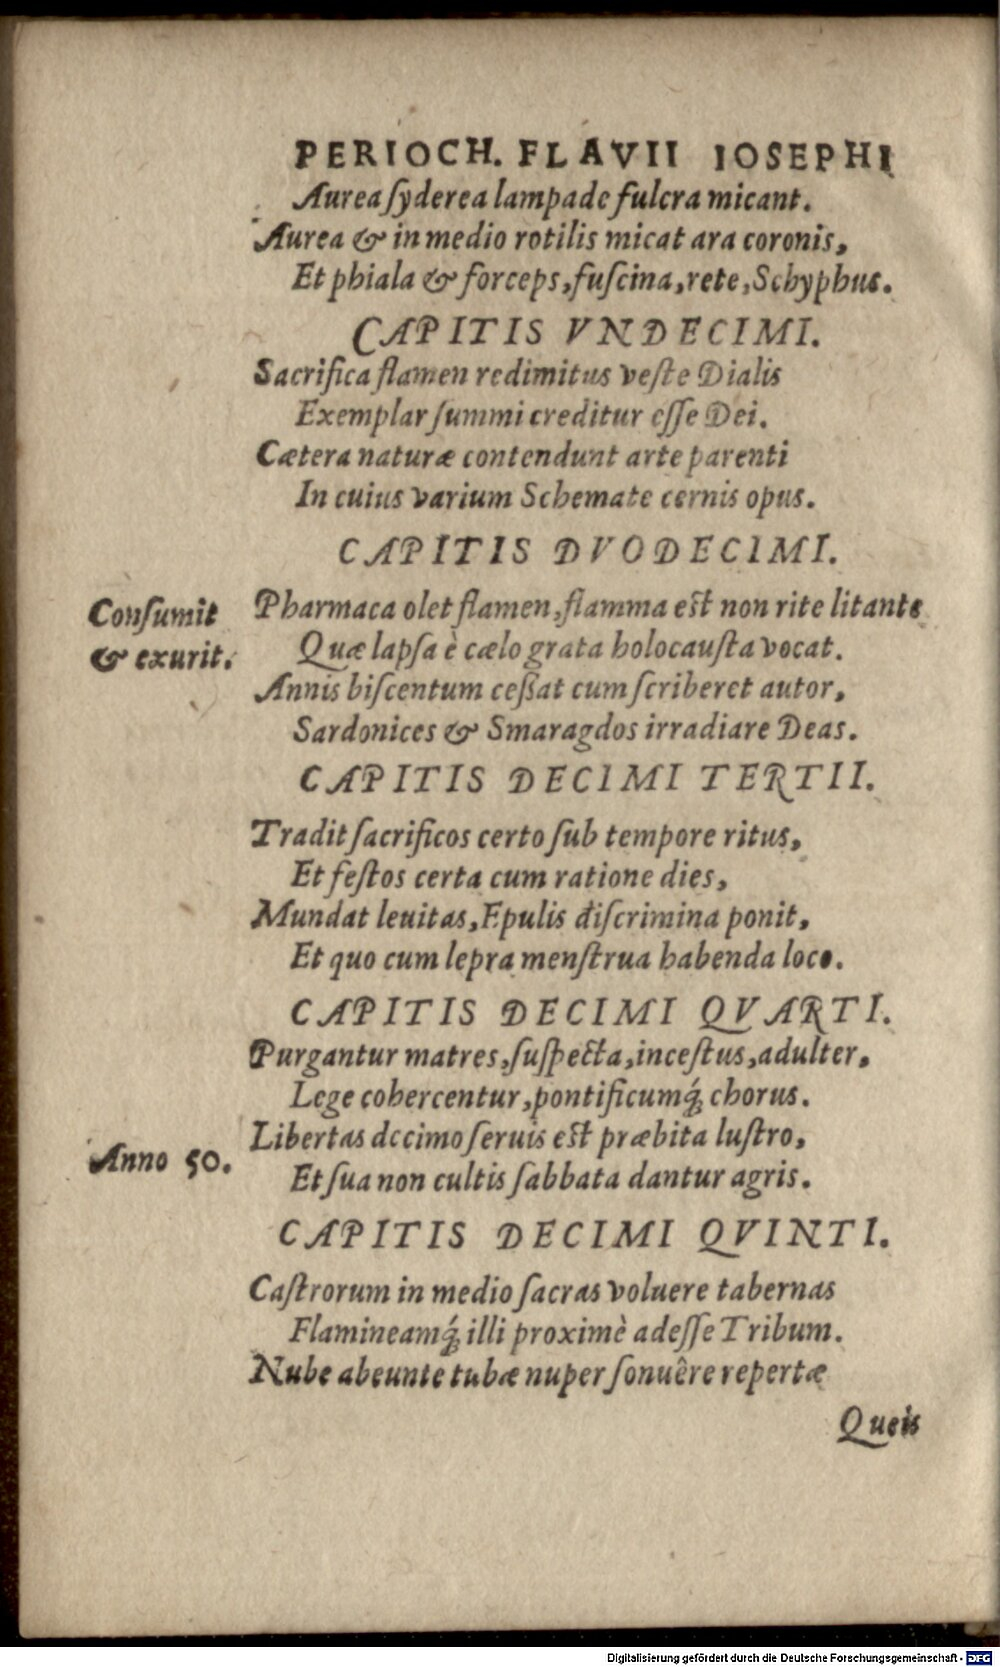 PERIOCH. FLAVII IOSEPHI
Aurea ſyderea lampade fulcra micant.
Aurea & in medio rotilis micat ara coronis,
Et phiala & forceps, fuſcina, rete, Schyphus.
CAPITIS VNDECIMI.
Sacrifica flamen redimitus veſte Dialis
Exemplar ſummi creditur eſſe Dei.
Cætera naturæ contendunt arte parenti
In cuius varium Schemate cernis opus.
CAPITIS DVODECIMI.
Consumit
& exurit.
Pharmaca olet flamen, flamma eſt non rite litante
Quæ lapſa è cælo grata holocauſta vocat.
Annis biſcentum ceßat cum ſcriberet autor,
Sardonices & Smaragdos irradiare Deas.
CAPITIS DECIMI TERTII.
Tradit ſacrificos certo ſub tempore ritus,
Et feſtos certa cum ratione dies,
Mundat leuitas, Epulis diſcrimina ponit,
Et quo cum lepra menſtrua habenda loco.
CAPITIS DECIMI QVARTI.
Purgantur matres, ſuſpecta, inceſtus, adulter,
Lege cohercentur, pontificumq́; chorus.
Libertas decimo ſeruis eſt præbita luſtro,
Anno 50.
Et ſua non cultis ſabbata dantur agris.
CAPITIS DECIMI QVINTI.
Caſtrorum in medio ſacras voluere tabernas
Flamineamq́; illi proximè adeſſe Tribum.
Nube abeunte tubæ nuper ſonuêre repertæ
Queis
Digitalisierung gefördert durch die Deutsche Forschungsgemeinschaft - DFG